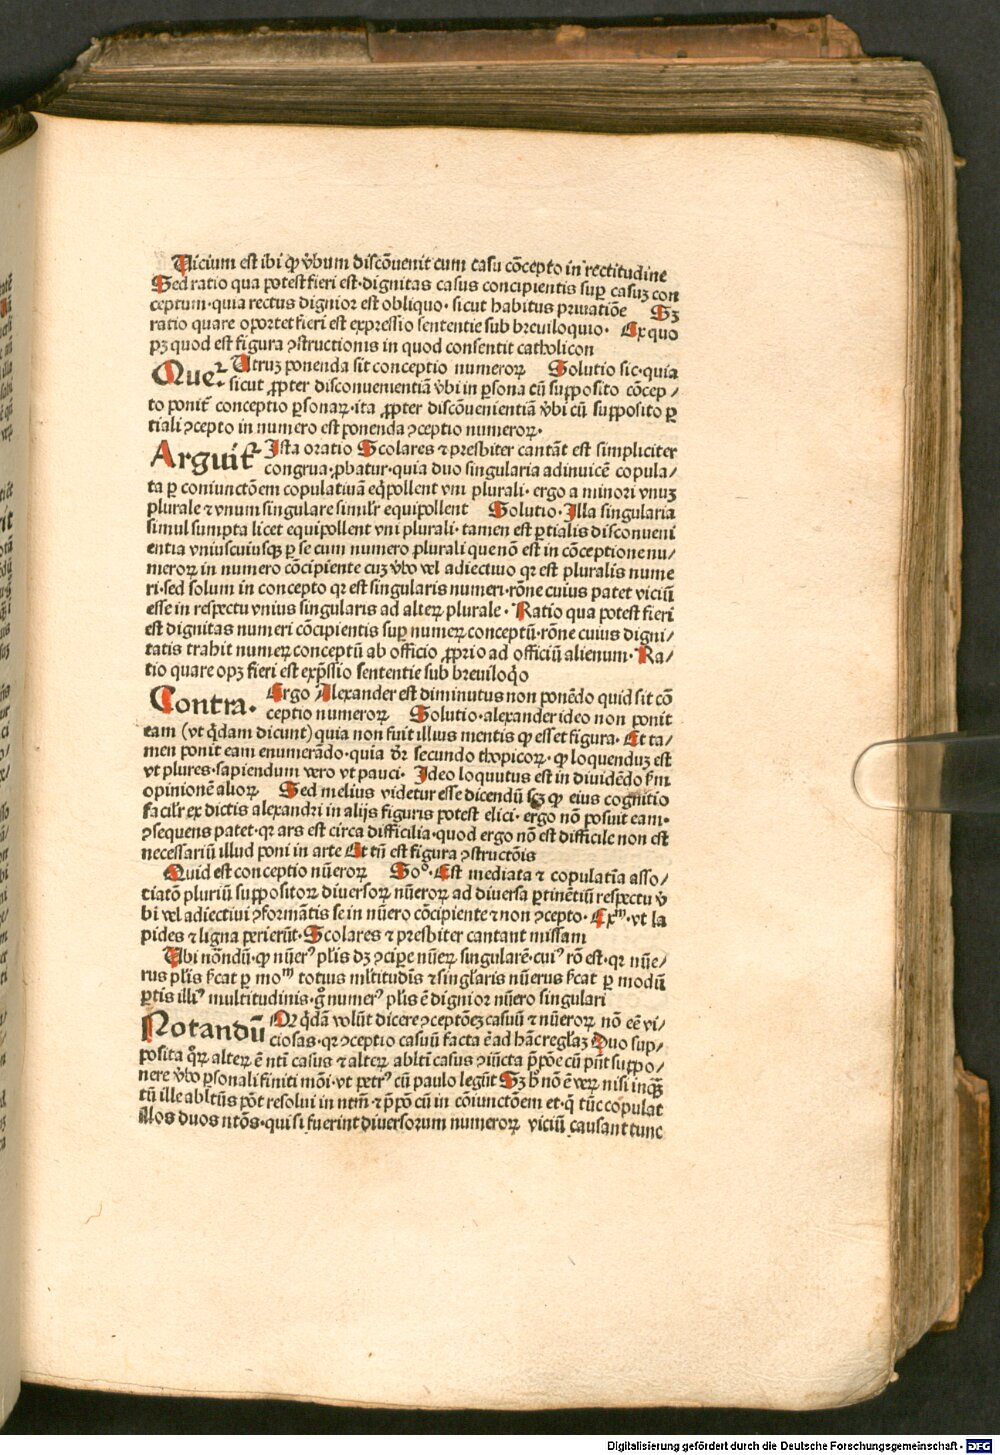 Uicium est ibi ꝙ v̄bum discōuenit cum casu cōcepto in rectitudine
Sed ratio qua potest fieri est·dignitas casus concipientis sup̄ casuꝫ con
ceptum·quia rectus dignior est obliquo· sicut habitus priuatiōe Sꝫ
ratio quare oportet fieri est expressio sententie sub breuiloquio· Ex quo
pꝫ quod est figura ꝯstructionis in quod consentit catholicon
Quer̄ Utruꝫ ponenda sit conceptio numeroꝝ Solutio sic·quia
sicut ꝓpter disconuenientiā v̄bi in ꝑsona cū supposito cōcep/
to ponit̄ conceptio ꝑsonaꝝ·ita ꝓpter discōuenientiā v̄bi cū supposito ꝑ
tiali ꝯcepto in numero est ponenda ꝯceptio numeroꝝ·
Arguit̄ Ista oratio Scolares ⁊ presbiter cantāt est simpliciter
congrua·ꝓbatur·quia duo singularia adinuicē copula/
ta ꝑ coniunctōem copulatiuā eq̄pollent vni plurali· ergo a minori vnuꝫ
plurale ⁊ vnum singulare simil̄r equipollent Solutio·Illa singularia
simul sumpta licet equipollent vni plurali· tamen est ꝑtialis disconueni
entia vniuscuiusqꝫ ꝑ se cum numero plurali que nō est in cōceptione nu/
meroꝝ in numero cōcipiente cuꝫ v̄bo vel adiectiuo qꝛ est pluralis nume
ri·sed solum in concepto qꝛ est singularis numeri·rōne cuius patet viciū
esse in respectu vnius singularis ad alteꝝ plurale· Ratio qua potest fieri
est dignitas numeri cōcipientis sup̄ numeꝝ conceptū·rōne cuius digni/
tatis trahit numeꝝ conceptū ab officio ꝓprio ad officiū alienum· Ra/
tio quare opꝫ fieri est exp̄ssio sententie sub breuiloq̄o
Contra· Ergo Alexander est diminutus non ponēdo quid sit cō
ceptio numeroꝝ Solutio·alexander ideo non ponit
eam (vt q̄dam dicunt) quia non fuit illius mentis ꝙ esset figura· Et ta/
men ponit eam enumerādo·quia dr̄ secundo thopicoꝝ· ꝙ loquenduꝫ est
vt plures·sapiendum vero vt pauci· Ideo loquutus est in diuidēdo ẜm
opinionē alioꝝ Sed melius videtur esse dicendū scꝫ ꝙ eius cognitio
facil̄r ex dictis alexandri in alijs figuris potest elici· ergo nō posuit eam·
ꝯsequens patet·qꝛ ars est circa difficilia·quod ergo nō est difficile non est
necessariū illud poni in arte Et tn̄ est figura ꝯstructōis
Quid est conceptio nūeroꝝ Soº· Est mediata ⁊ copulat̄ia asso/
tiatō pluriū suppositoꝝ diuersoꝝ nūeroꝝ ad diuersa ꝑtinētiū respectu v̄
bi vel adiectiui ꝯformātis se in nūero cōcipiente ⁊ non ꝯcepto· Exᵐ·vt la
pides ⁊ ligna perierūt·Scolares ⁊ presbiter cantant missam
Ubi nōndū·ꝙ nūerꝰ pl̄is dꝫ ꝯciꝑe nūeꝝ singularē·cuiꝰ rō est·qꝛ nūe/
rus pl̄is ẜcat ꝑ moᵐ totius ml̄titudīs ⁊ singl̄aris nūerus ẜcat ꝑ modū
ꝑtis illiꝰ multitudinis·g̊ numerꝰ pl̄is ē dignior nūero singulari
Notandū Qꝛ q̄dā volūt dicere ꝯceptōeꝫ casuū ⁊ nūeroꝝ nō eē vi/
ciosas·qꝛ ꝯceptio casuū facta ē ad hāc regl̄aꝫ Duo sup/
posita q̄ꝝ alteꝝ ē nt̄i casus ⁊ alteꝝ ablt̄i casus ꝯiūcta p̄pōe cū pn̄t suppo/
nere v̄bo ꝑsonali finiti mōi·vt petrꝰ cū paulo legūt Sꝫ h̄ nō ē veꝝ nisi inqꝫ
tū ille ablt̄us pōt resolui in ntm̄ ⁊ p̄pō cū in cōiunctōem et·q̄ tūc copulat
illos duos nt̄os·qui si fuerint diuersorum numeroꝝ viciū causant tunc
Digitalisierung gefördert durch die Deutsche Forschungsgemeinschaft - DFG